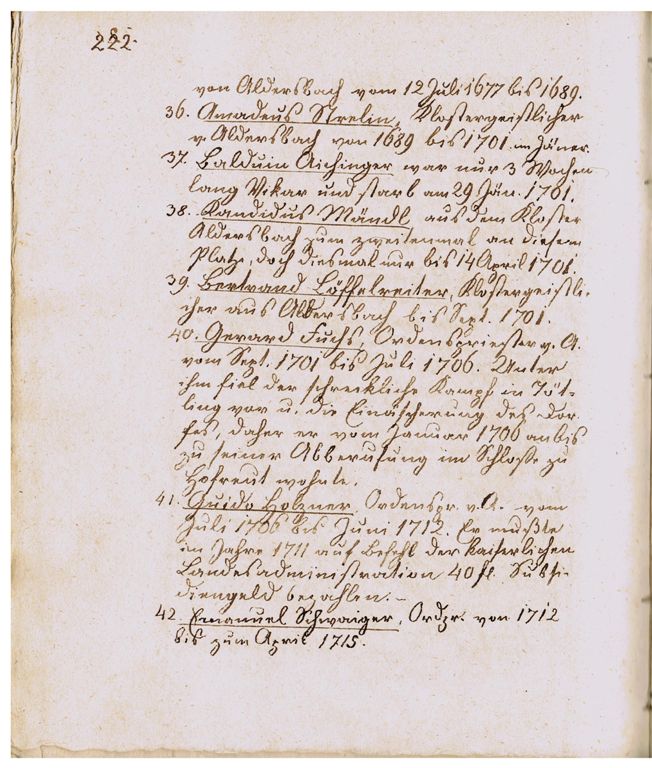 222.
von Aldersbach vom 12 Juli 1677 bis 1689.
36. Amadeus Strelin, Klostergeistlicher
v. Aldersbach von 1689 bis 1701. im Jäner.
37. Balduin Aichinger war nur 3 Wochen
lang Vikar und starb am 29 Jän. 1701.
38. Kandidus Mändl aus dem Kloster
Aldersbach zum zweitenmal an diesem
Platze, doch diesmal nur bis 14 April 1701.
39. Bertrand Löffelreiter, Klostergeistli-
cher aus Aldersbach bis Sept. 1701.
40. Gerard Fuchs, Ordenspriester v. A.
vom Sept. 1701 bis Juli 1706. Unter
ihm fiel der schreckliche Kampf in Jöt-
ling vor u. die Einäscherung des Dor-
fes, daher er vom Januar 1706 an bis
zu seiner Abberufung im Schloße zu
Hofreut wohnte.
41. Guido Holzner, Ordenspr. v. A. vom
Juli 1706 bis Juni 1712. Er mußte
im Jahre 1711 auf Befehl der kaiserlichen
Landesadministration 40 fl. Subsi-
diengeld bezahlen.-
42. Emanuel Schwaiger, Ordpr. von 1712
bis zum April 1715.